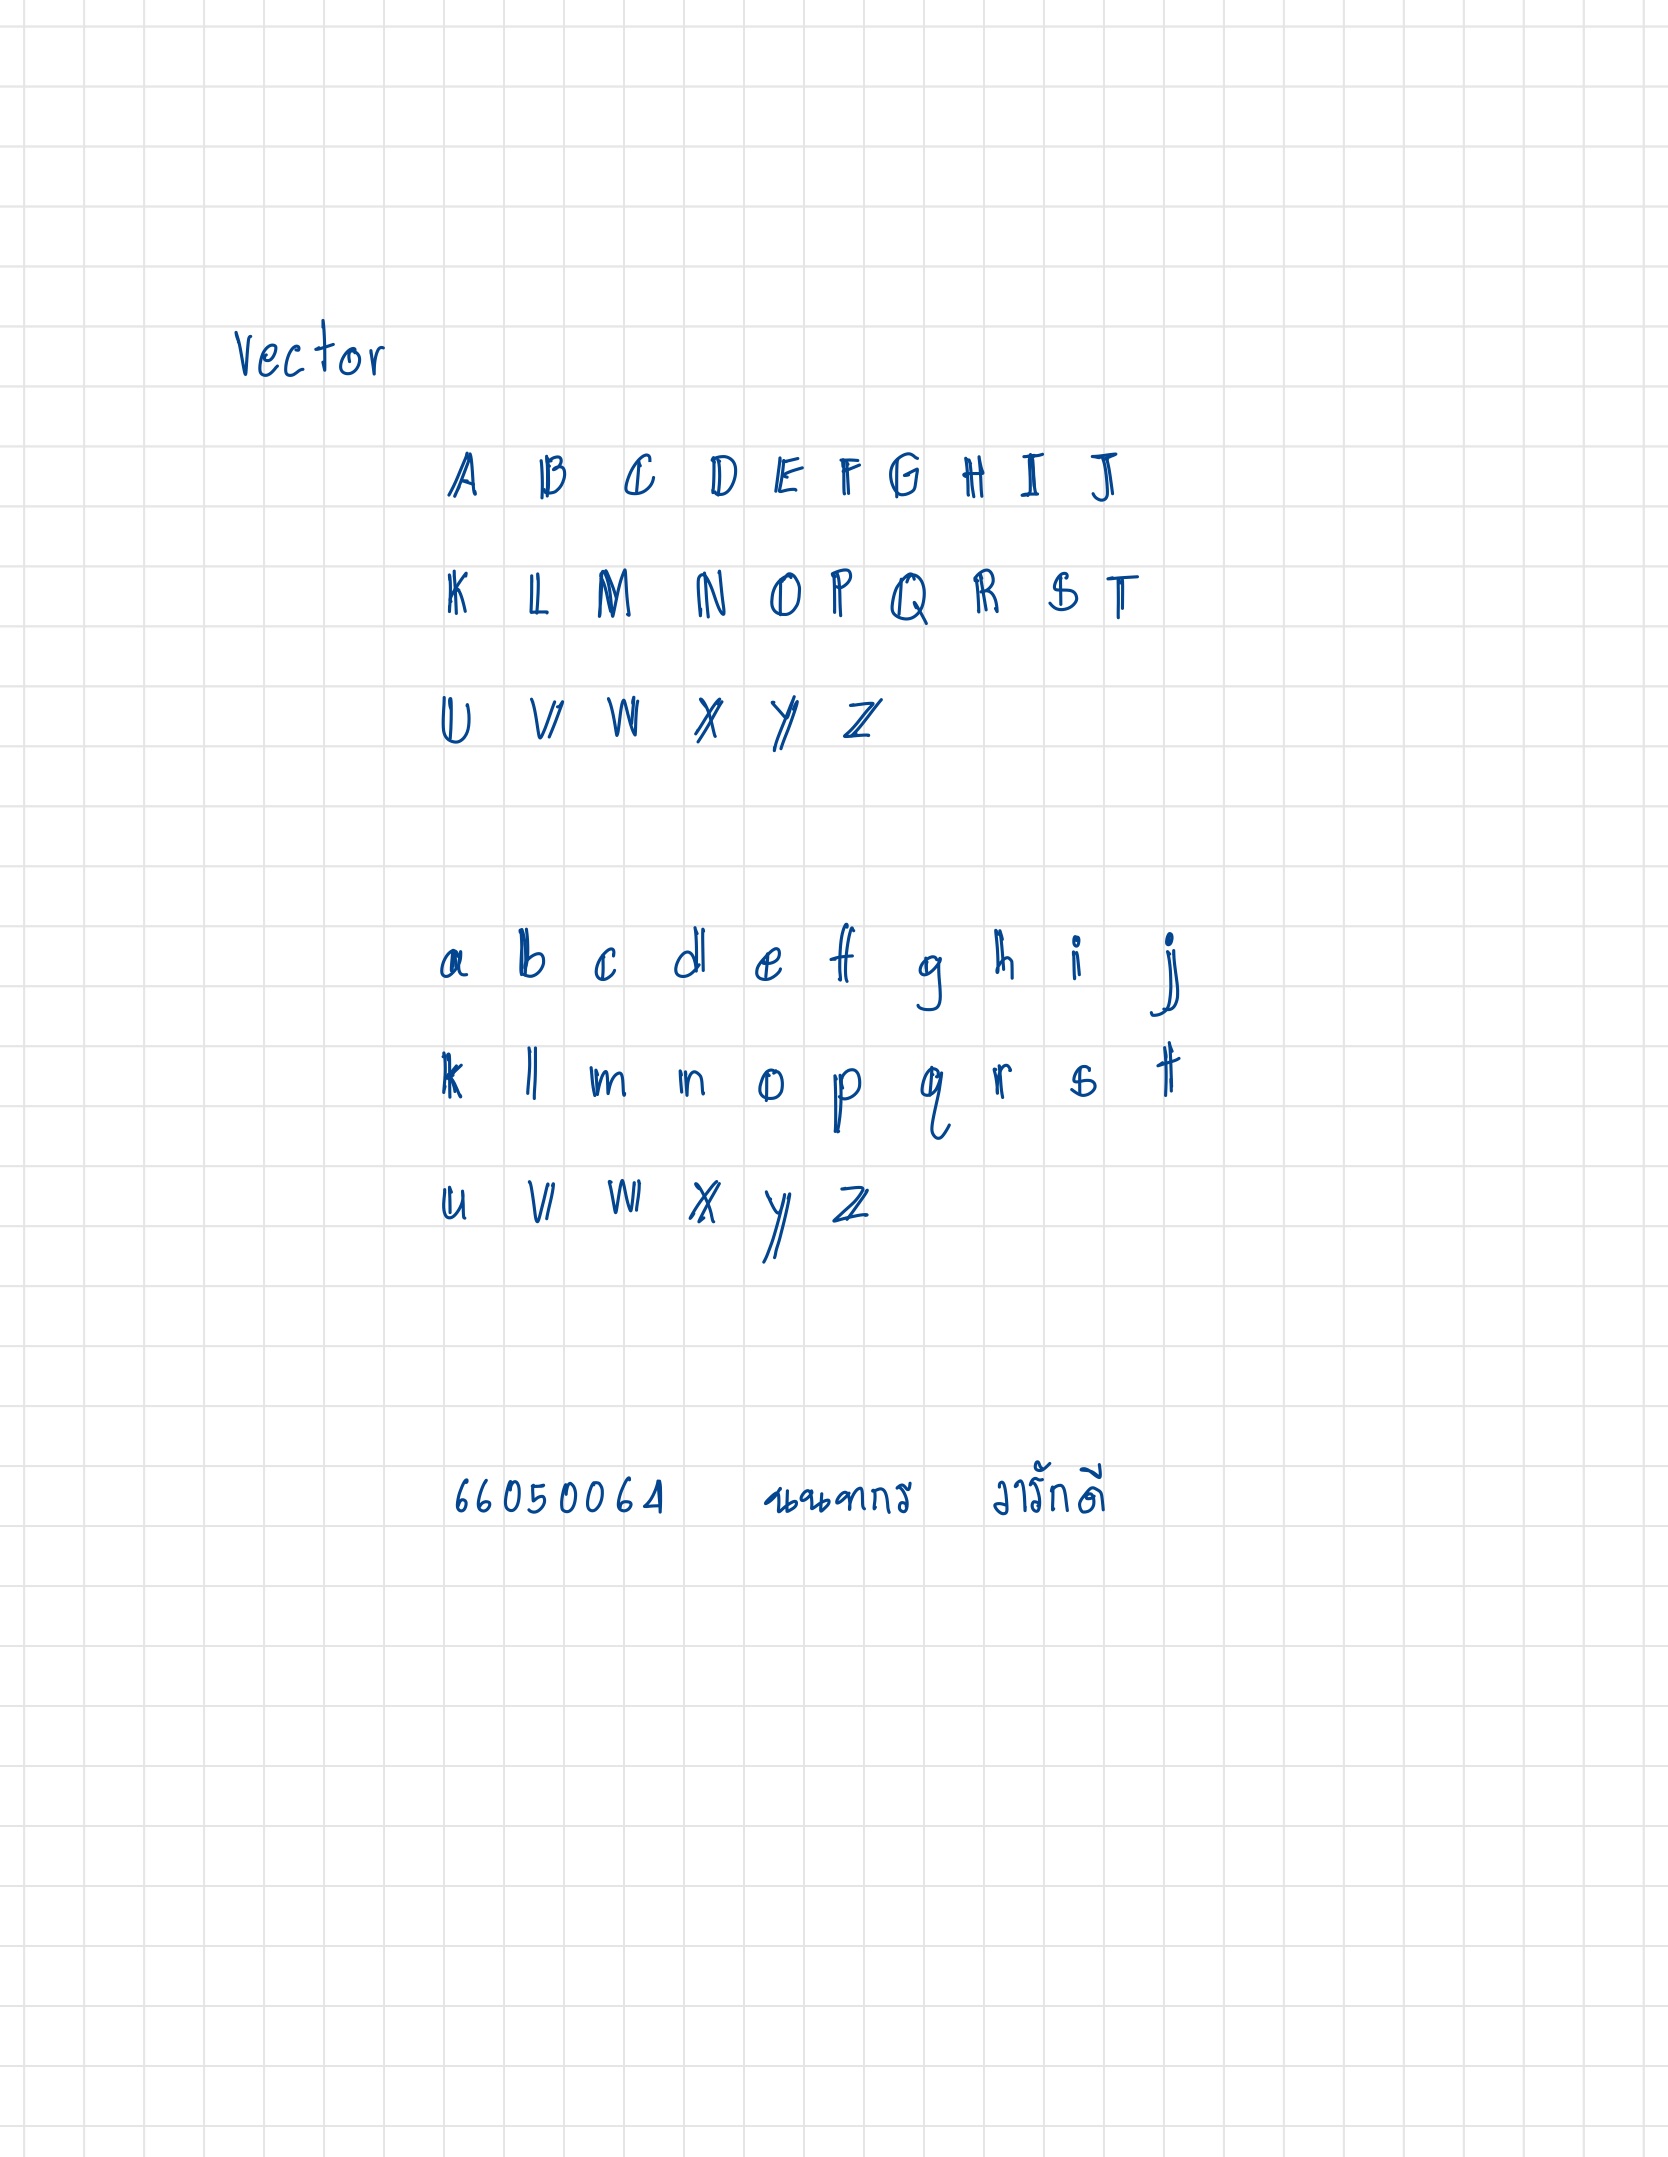 Vector
A B C D E F G H I J
K L M N O P Q R S T
U V W X Y Z
a b c d e f g h i j
k l m n o p q r s t
u v w x y z
66050064